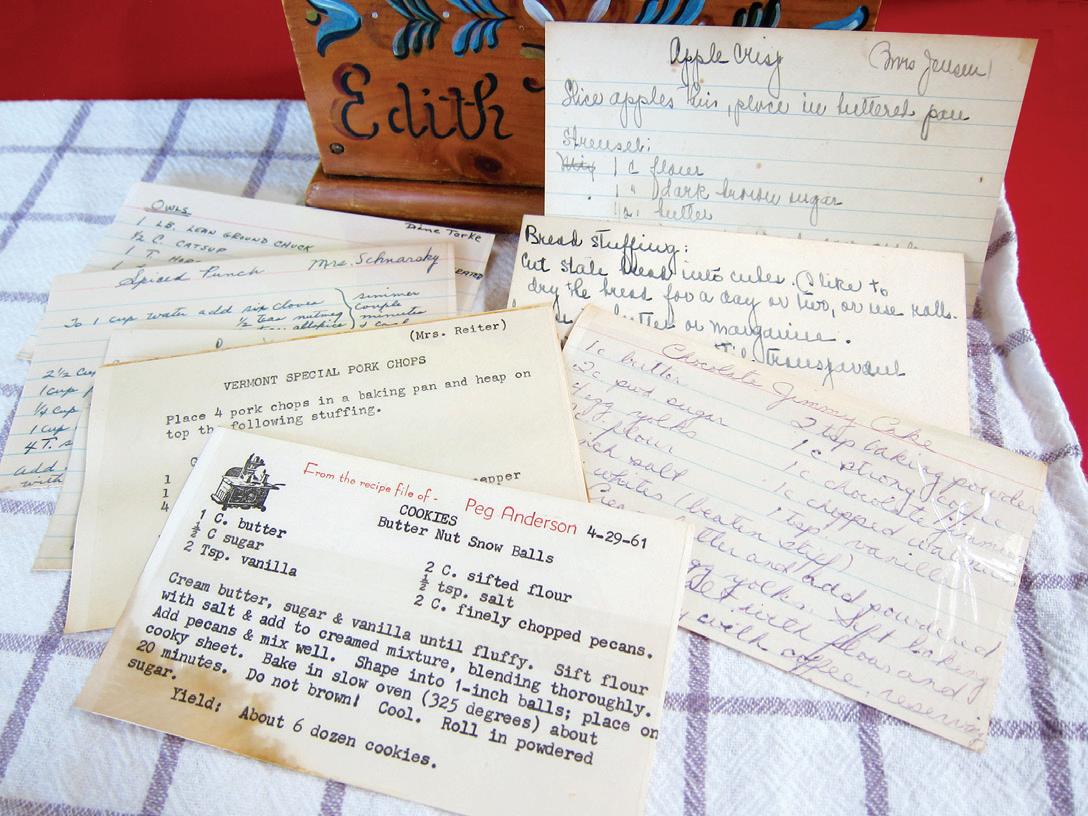 Edith
Apple Crisp (Mrs Jensen)
Slice apples thin, place in buttered pan
Streusel:
Mix 1 c flour
1 " dark brown sugar
1/2 " butter
Owls Diane Torke
1 LB. LEAN GROUND CHUCK
1/2 C. CATSUP
1 T.
Spiced Punch Mrs. Schnarsky
To 1 cup water add six cloves
1/2 teas nutmeg
simmer
couple
minutes
2 1/2 C
1 cup
1/4 Cup
1 Cup
4 T.
add
with
Bread stuffing:
Cut stale bread into cubes. I like to
dry the bread for a day or two, or use rolls.
butter or margarine.
'til transparent
(Mrs. Reiter)
VERMONT SPECIAL PORK CHOPS
Place 4 pork chops in a baking pan and heap on
top the following stuffing.
1
1
4
Chocolate Jimmy Cake
1c butter
2c pwd sugar
egg yolks
flour
salt
whites beaten stiff)
2 tsp baking powder
1c strong coffee
1c chocolate
1c chopped
1 tsp. vanilla
and add powdered
egg yolks. Sift baking
with flour and
with coffee, reserving
From the recipe file of - Peg Anderson 4-29-61
COOKIES
Butter Nut Snow Balls
1 C. butter
1/2 C sugar
2 Tsp. vanilla
2 C. sifted flour
1/2 tsp. salt
2 C. finely chopped pecans.
Cream butter, sugar & vanilla until fluffy. Sift flour
with salt & add to creamed mixture, blending thoroughly.
Add pecans & mix well. Shape into 1-inch balls; place on
cooky sheet. Bake in slow oven (325 degrees) about
20 minutes. Do not brown! Cool. Roll in powdered
sugar.
Yield: About 6 dozen cookies.